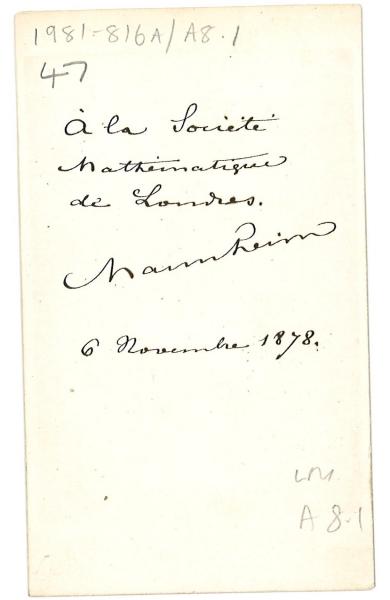 1981-816A/A8.1
47
À la Société
Mathématique
de Londres.
Mannheim
6 Novembre 1878.
LM
A 8.1